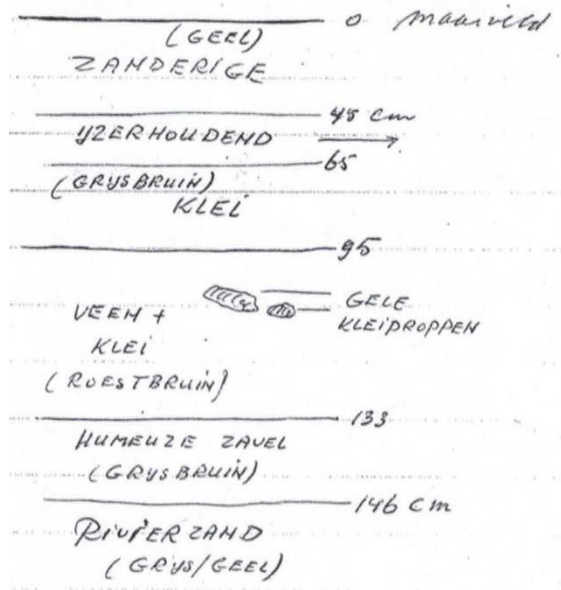 0 maaiveld
(GEEL)
ZANDERIGE
45 cm
YZERHOUDEND
65
(GRYSBRUIN)
KLEI
95
GELE
KLEIPROPPEN
VEEN +
KLEI
(ROESTBRUIN)
133
HUMEUZE ZAVEL
(GRYSBRUIN)
146 cm
RIVIERZAND
(GRYS/GEEL)